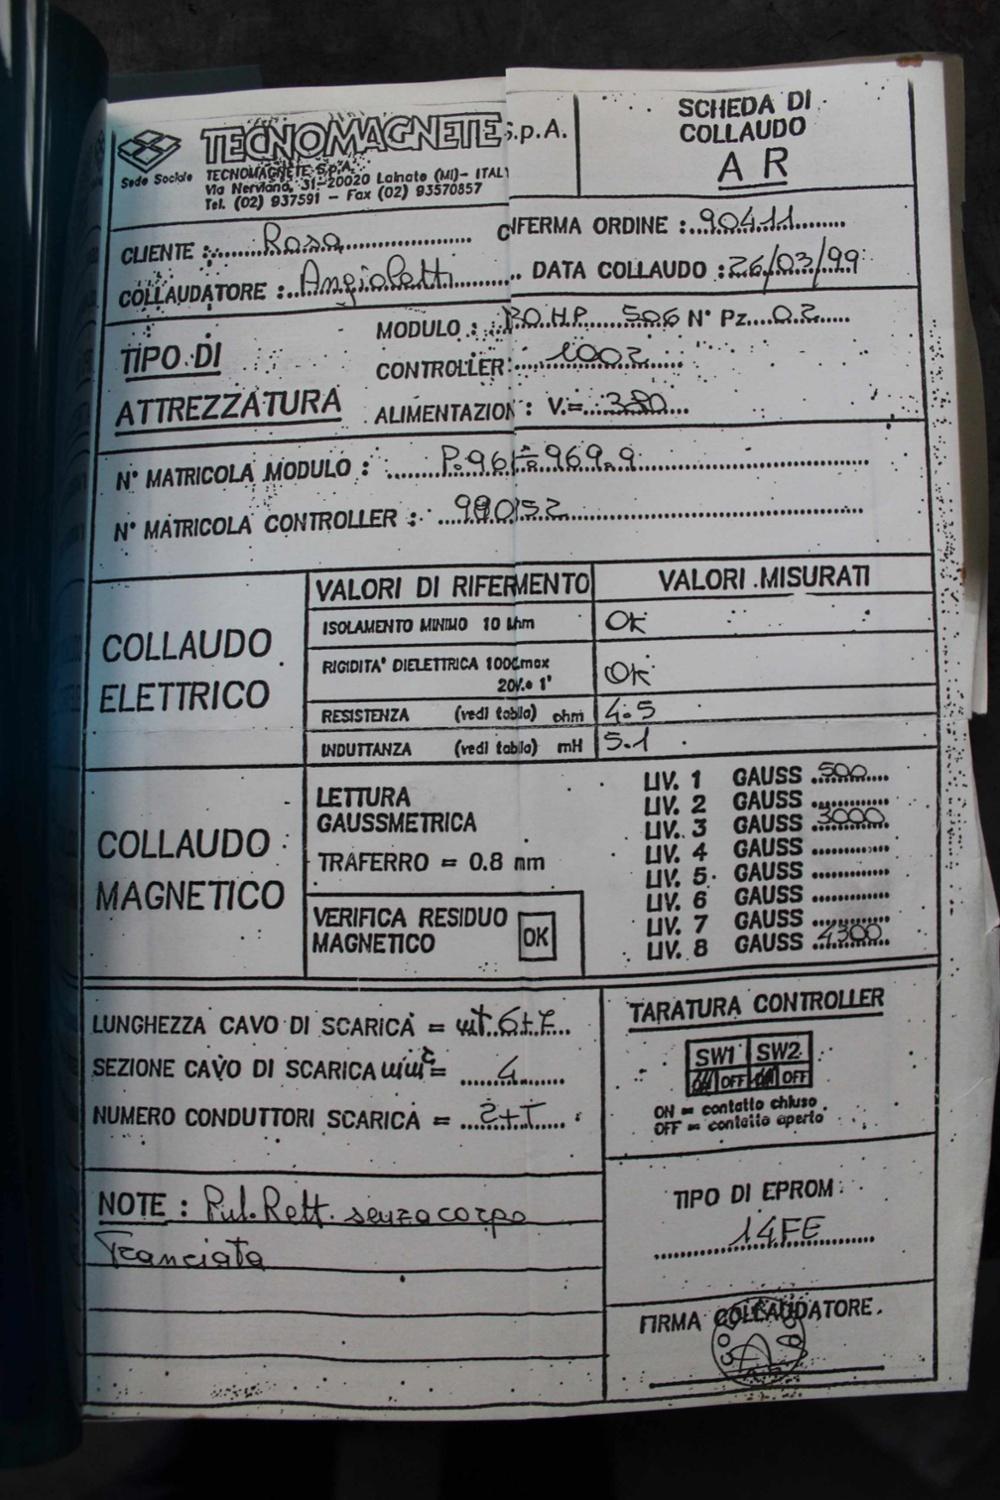 TECNOMAGNETE S.p.A.
Sede Sociale
TECNOMAGNETE S.p.A.
Via Nerviano, 31-20020 Lainate (MI)- ITALY
Tel. (02) 937591 - Fax (02) 93570857
SCHEDA DI
COLLAUDO
A R
CLIENTE : Rosa
NFERMA ORDINE : 90411
COLLAUDATORE : Angioletti
DATA COLLAUDO : 26/03/99
TIPO DI
ATTREZZATURA
MODULO : H.P. 506 N° Pz. 02
CONTROLLER: 1002
ALIMENTAZION : V.= 380
N° MATRICOLA MODULO :
N° MATRICOLA CONTROLLER : 990152
COLLAUDO
ELETTRICO
VALORI DI RIFERIMENTO
VALORI MISURATI
ISOLAMENTO MINIMO 10 ohm OK
RIGIDITA' DIELETTRICA OK
RESISTENZA (vedi tabella) ohm 4.5
INDUTTANZA (vedi tabella) mH 5.1
COLLAUDO
MAGNETICO
LETTURA
GAUSSMETRICA
TRAFERRO = 0.8 mm
VERIFICA RESIDUO
MAGNETICO
OK
LIV. 1 GAUSS 500
LIV. 2 GAUSS
LIV. 3 GAUSS 3000
LIV. 4 GAUSS
LIV. 5 GAUSS
LIV. 6 GAUSS
LIV. 7 GAUSS
LIV. 8 GAUSS 4300
LUNGHEZZA CAVO DI SCARICA = mt. 6+7
SEZIONE CAVO DI SCARICA mm² = 4
NUMERO CONDUTTORI SCARICA = 2+T
TARATURA CONTROLLER
SW1 SW2
ON OFF ON OFF
ON = contatto chiuso
OFF = contatto aperto
NOTE : Pul. Rett. senza corpo
Tranciata
TIPO DI EPROM :
14FE
FIRMA COLLAUDATORE.